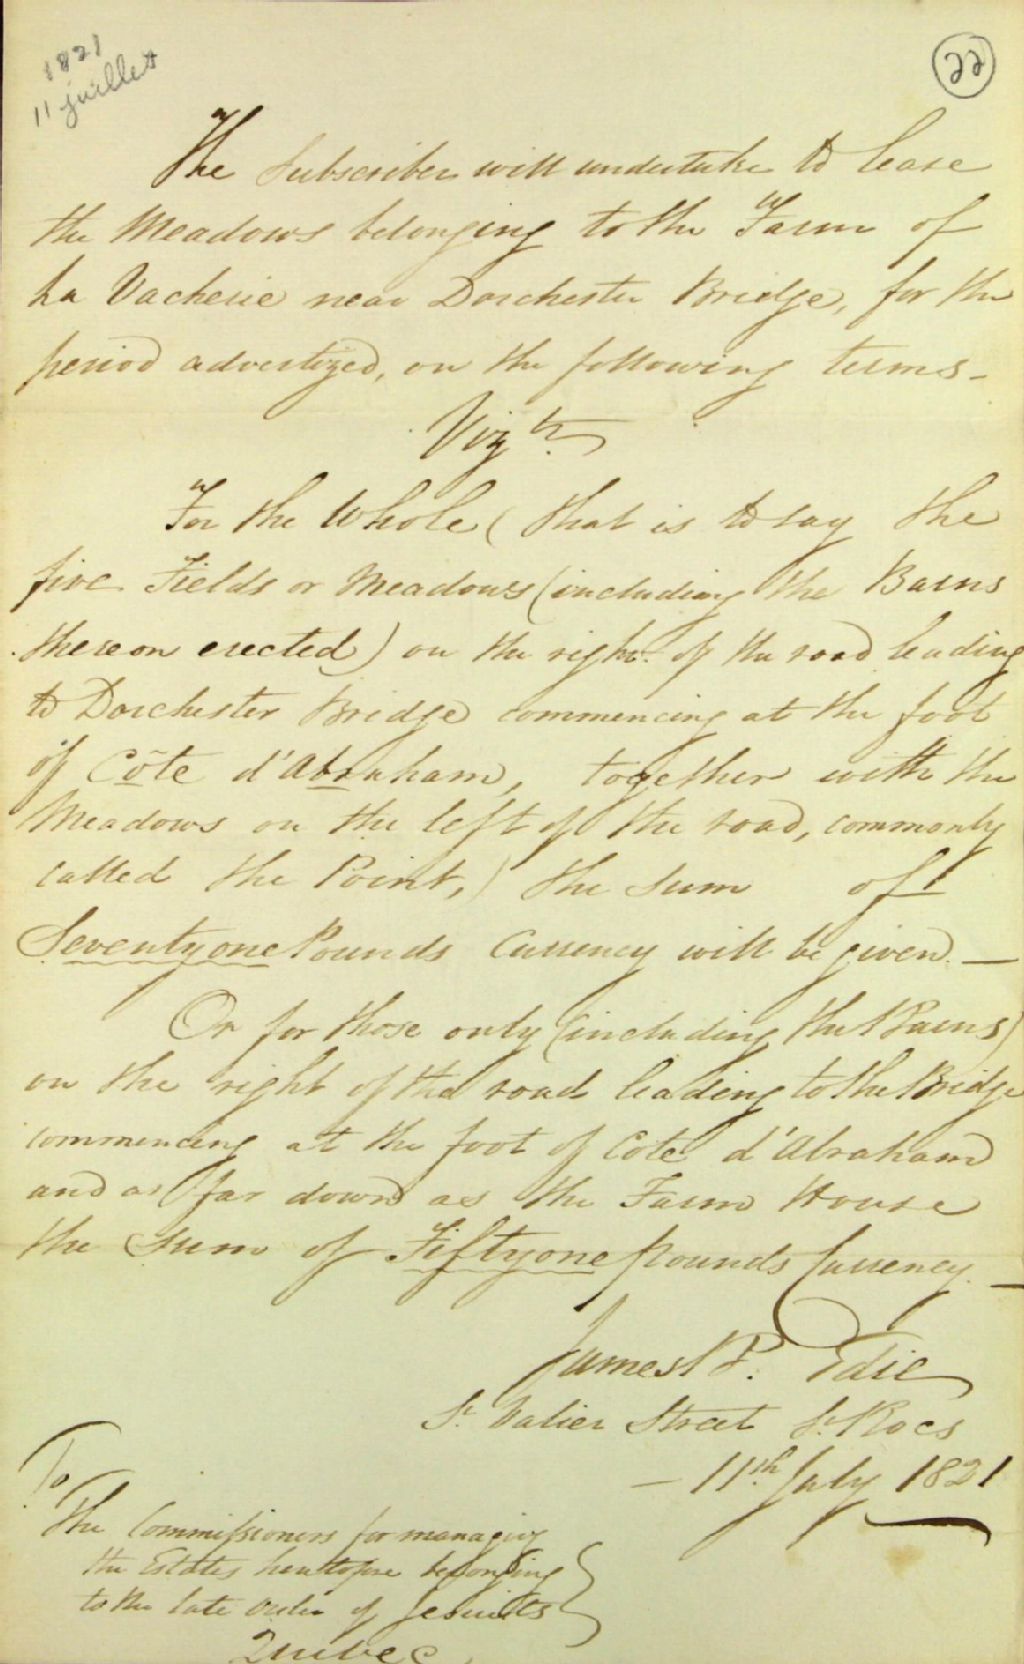 1821
11 juillet
22
The Subscriber will undertake to lease
the Meadows belonging to the Farm of
La Vacherie near Dorchester Bridge, for the
period advertized, on the following terms -
Vizt.
For the Whole (that is to say the
five Fields or Meadows (including the Barns
thereon erected) on the right of the road leading
to Dorchester Bridge commencing at the foot
of Côte d'Abraham, together with the
Meadows on the left of the road, commonly
called the Point,) the sum of
Seventy one Pounds Currency will be given. —
Or for those only (including the Barns)
on the right of the road leading to the Bridge
commencing at the foot of Cote d'Abraham
and as far down as the Farm House
the Sum of Fifty one Pounds Currency. —
James P. Edie
St. Valier Street St. Rocs
- 11th July 1821
To
The Commissioners for managing
the Estates heretofore belonging
to the late Order of Jesuits
Quebec.